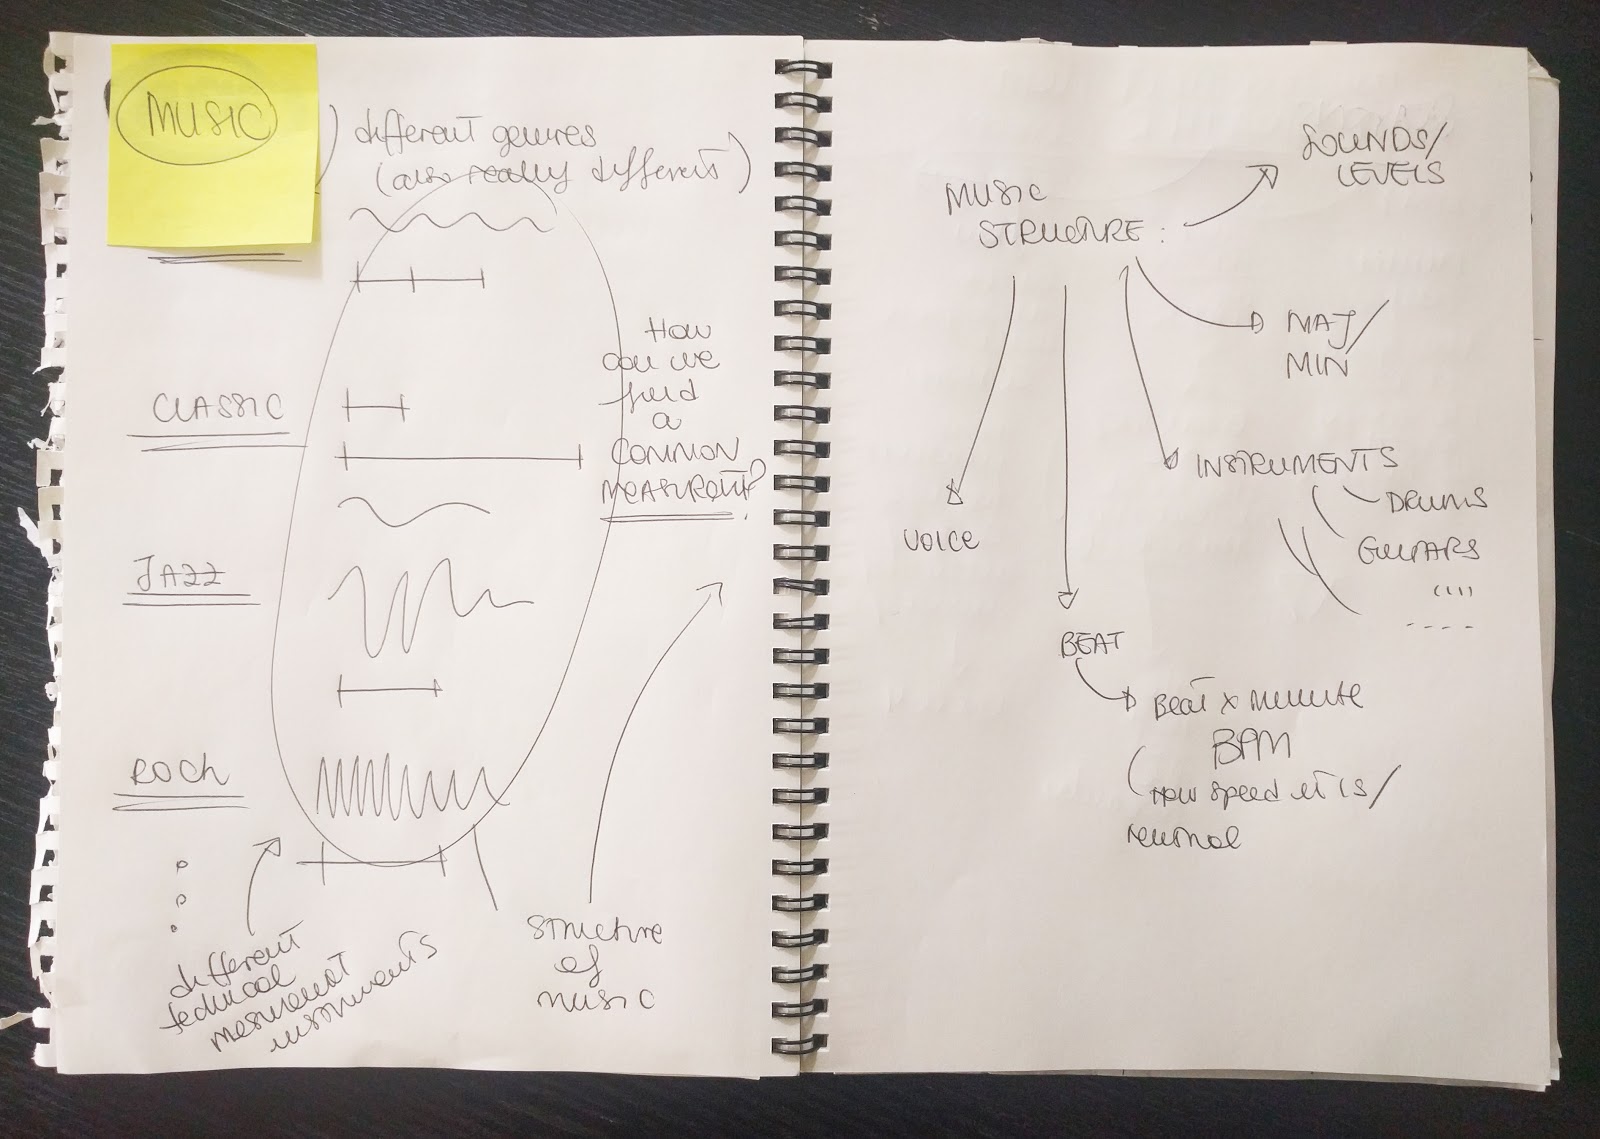 MUSIC
different genres
(also really different)
How
can we
find
a
COMMON
MEASUREMENT?
CLASSIC
JAZZ
ROCK
different
technical
mesurement
instruments
structure
of
music
MUSIC
STRUCTURE:
SOUNDS/
LEVELS
MAJ/
MIN
INSTRUMENTS
DRUMS
GUITARS
VOICE
BEAT
Beat x minute
BPM
How speed it is/